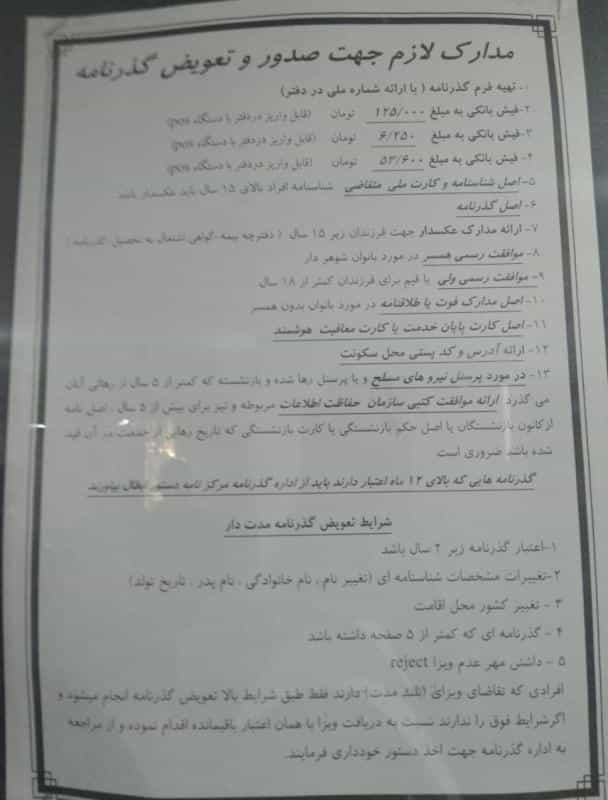 مدارک لازم جهت صدور و تعویض گذرنامه
۱- تهیه فرم گذرنامه ( با ارائه شماره ملی در دفتر)
۲-فیش بانکی به مبلغ ۱۲۵/۰۰۰ تومان (قابل واریز دردفتر با دستگاه pos)
۳-فیش بانکی به مبلغ ۶/۲۵۰ تومان (قابل واریز دردفتر با دستگاه pos)
۴- فیش بانکی به مبلغ ۵۳/۶۰۰ تومان (قابل واریز دردفتر با دستگاه pos)
۵-اصل شناسنامه و کارت ملی متقاضی شناسنامه افراد بالای ۱۵ سال باید عکسدار باشد
۶- اصل گذرنامه
۷- ارائه مدارک عکسدار جهت فرزندان زیر ۱۵ سال ( دفترچه بیمه-گواهی اشتغال به تحصیل-گذرنامه )
۸- موافقت رسمی همسر در مورد بانوان شوهر دار
۹- موافقت رسمی ولی یا قیم برای فرزندان کمتر از ۱۸ سال
۱۰- اصل مدارک فوت یا طلاقنامه در مورد بانوان بدون همسر
۱۱-اصل کارت پایان خدمت یا کارت معافیت هوشمند
۱۲- ارائه آدرس و کد پستی محل سکونت
۱۳- در مورد پرسنل نیرو های مسلح و یا پرسنل رها شده و بازنشسته که کمتر از ۵ سال از رهائی آنان
می گذرد ارائه موافقت کتبی سازمان حفاظت اطلاعات مربوطه و نیز برای بیش از ۵ سال ، اصل نامه
ازکانون بازنشستگان یا اصل حکم بازنشستگی یا کارت بازنشستگی که تاریخ رهایی از خدمت در آن قید
شده باشد ضروری است
گذرنامه هایی که بالای ۱۲ ماه اعتبار دارند باید از اداره گذرنامه مرکز نامه دستور ابطال بیاورند
شرایط تعویض گذرنامه مدت دار
۱-اعتبار گذرنامه زیر ۲ سال باشد
۲-تغییرات مشخصات شناسنامه ای (تغییر نام ، نام خانوادگی ، نام پدر ، تاریخ تولد)
۳ - تغییر کشور محل اقامت
۴ - گذرنامه ای که کمتر از ۵ صفحه داشته باشد
۵ - داشتن مهر عدم ویزا reject
افرادی که تقاضای ویزای (بلند مدت) دارند فقط طبق شرایط بالا تعویض گذرنامه انجام میشود و
اگرشرایط فوق را ندارند نسبت به دریافت ویزا با همان اعتبار باقیمانده اقدام نموده و از مراجعه
به اداره گذرنامه جهت اخذ دستور خودداری فرمایند.